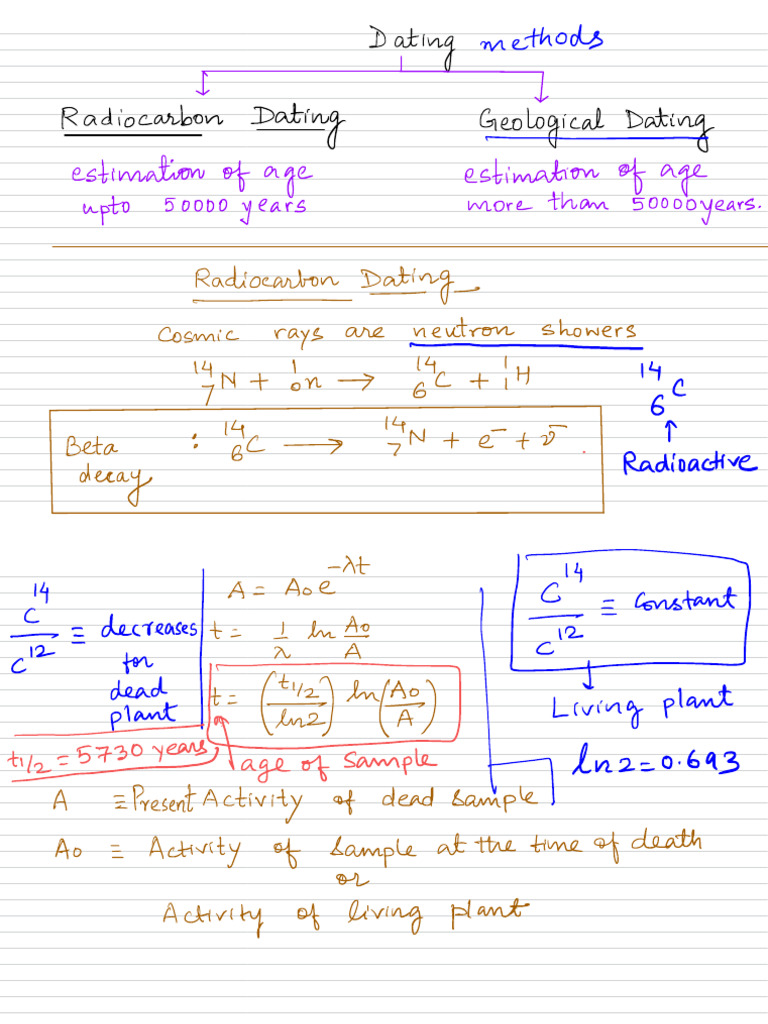 Dating methods
Radiocarbon Dating
estimation of age
upto 50000 years
Geological Dating
estimation of age
more than 50000 years.
Radiocarbon Dating
Cosmic rays are neutron showers
¹⁴₇N + ¹₀n → ¹⁴₆C + ¹₁H
Beta decay : ¹⁴₆C → ¹⁴₇N + e⁻ + ν̄
¹⁴₆C
↑
Radioactive
C¹⁴/C¹² ≡ decreases
for
dead
plant
A = A₀e^(-λt)
t = 1/λ ln A₀/A
t = (t₁/₂/ln2) ln(A₀/A)
C¹⁴/C¹² ≡ Constant
Living plant
t₁/₂ = 5730 years
age of sample
ln2 = 0.693
A ≡ Present Activity of dead sample
A₀ ≡ Activity of sample at the time of death
or
Activity of living plant